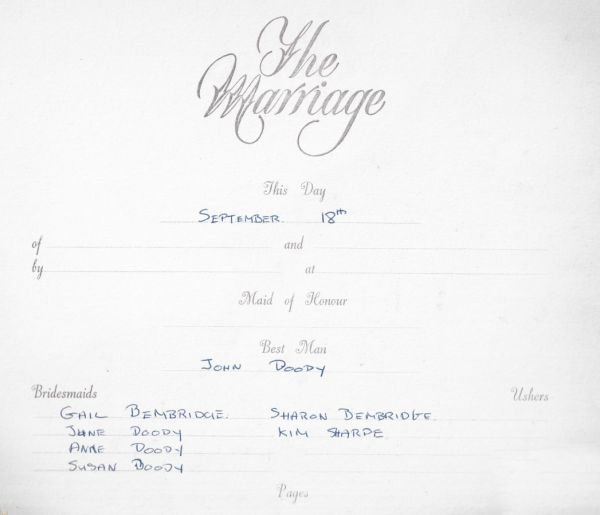 The
Marriage
This Day
SEPTEMBER. 18th
of and
by at
Maid of Honour
Best Man
JOHN DOODY
Bridesmaids Ushers
GAIL BEMBRIDGE. SHARON BEMBRIDGE.
JUNE DOODY KIM SHARPE
ANNE DOODY
SUSAN DOODY
Pages